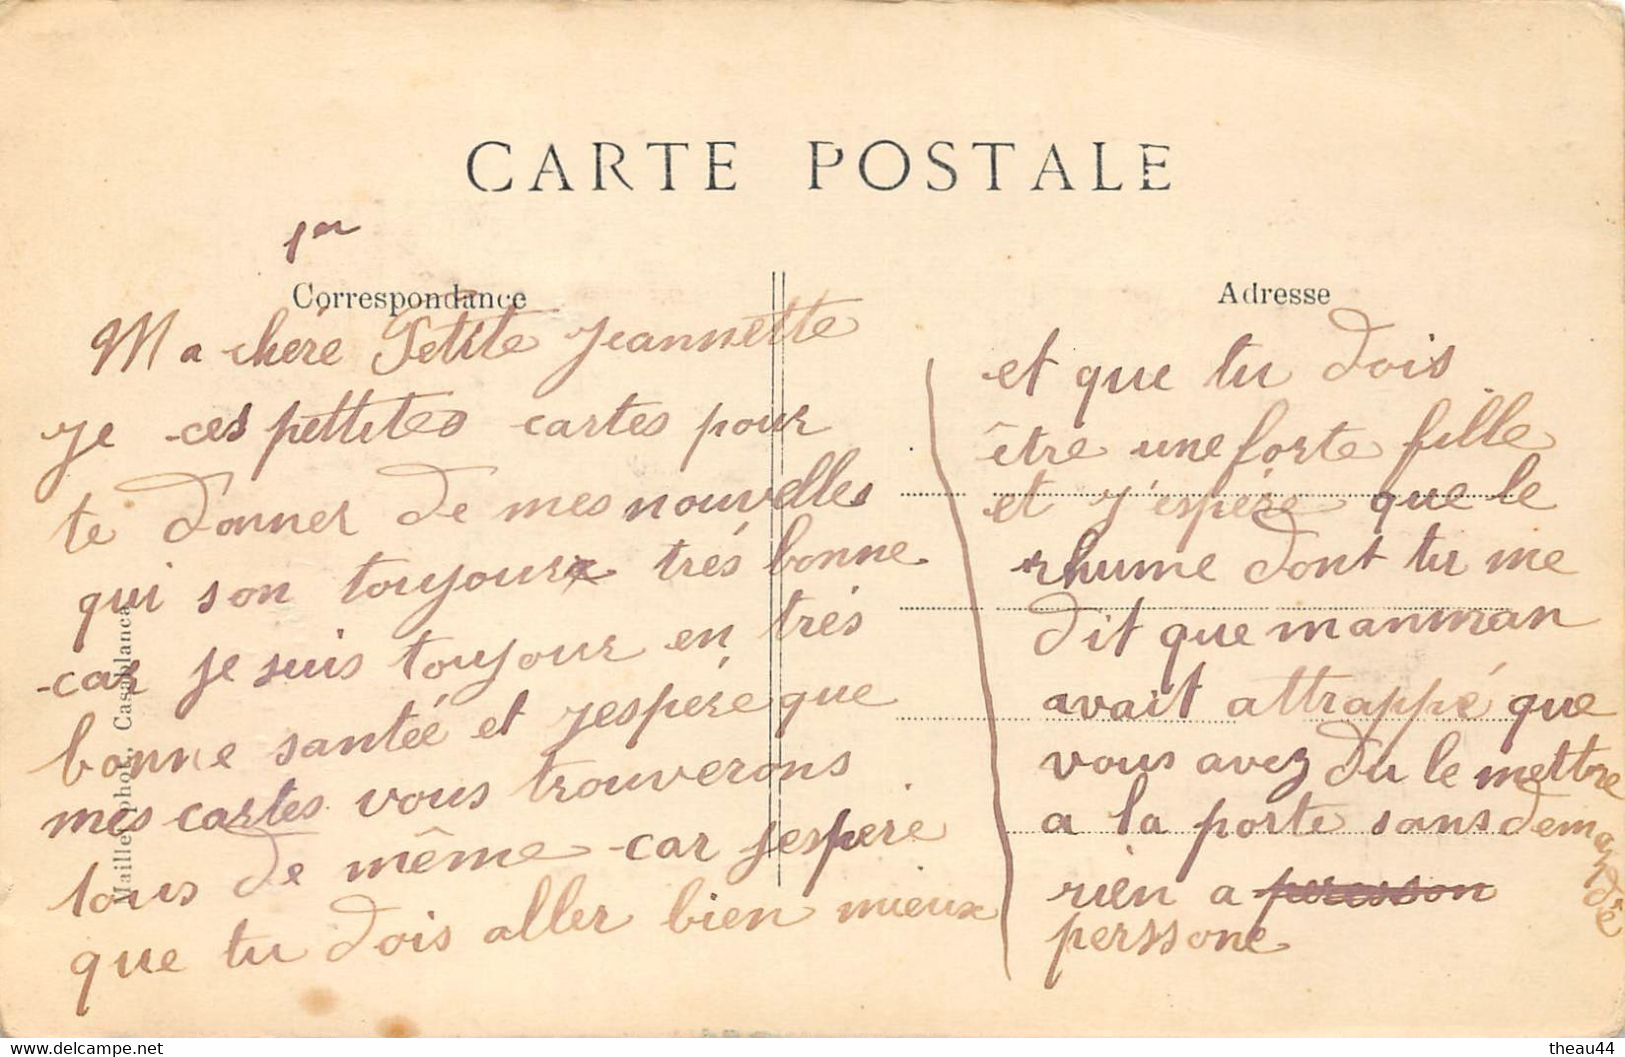 CARTE POSTALE
1er
Correspondance
Ma chère Petite Jeannette
je ces pettites cartes pour
te donner de mes nouvelles
qui son toujours trés bonne
car je suis toujour en trés
bonne santée et jespére que
mes cartes vous trouverons
tous de même car jespére
que tu dois aller bien mieux
Adresse
et que tu dois
être une forte fille
et j'espére que le
rhume dont tu me
dit que manman
avait attrappé que
vous avez du le mettre
a la porte sans demandé
rien a persson
perssone
Maillet phot., Casablanca
https://www.delcampe.net
theau44